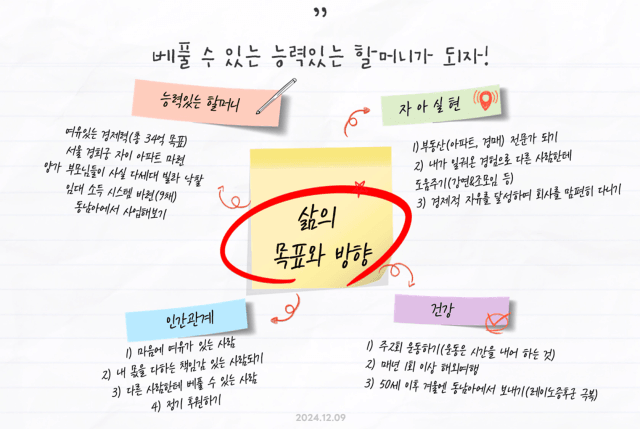 ”
베풀 수 있는 능력있는 할머니가 되자!
능력있는 할머니
여유있는 경제력(총 34억 목표)
서울 경희궁 자이 아파트 마련
양가 부모님들이 사실 다세대 빌라 낙찰
임대 소득 시스템 마련(9채)
동남아에서 사업해보기
자아실현
1) 부동산(아파트, 경매) 전문가 되기
2) 내가 일궈온 경험으로 다른 사람한테
도움주기(강연&조모임 등)
3) 경제적 자유를 달성하여 회사를 맘편히 다니기
삶의
목표와 방향
인간관계
1) 마음에 여유가 있는 사람
2) 내 몫을 다하는 책임감 있는 사람되기
3) 다른 사람한테 베풀 수 있는 사람
4) 정기 후원하기
건강
1) 주2회 운동하기(운동은 시간을 내어 하는 것)
2) 매년 1회 이상 해외여행
3) 50세 이후 겨울엔 동남아에서 보내기(레이노증후군 극복)
2024.12.09